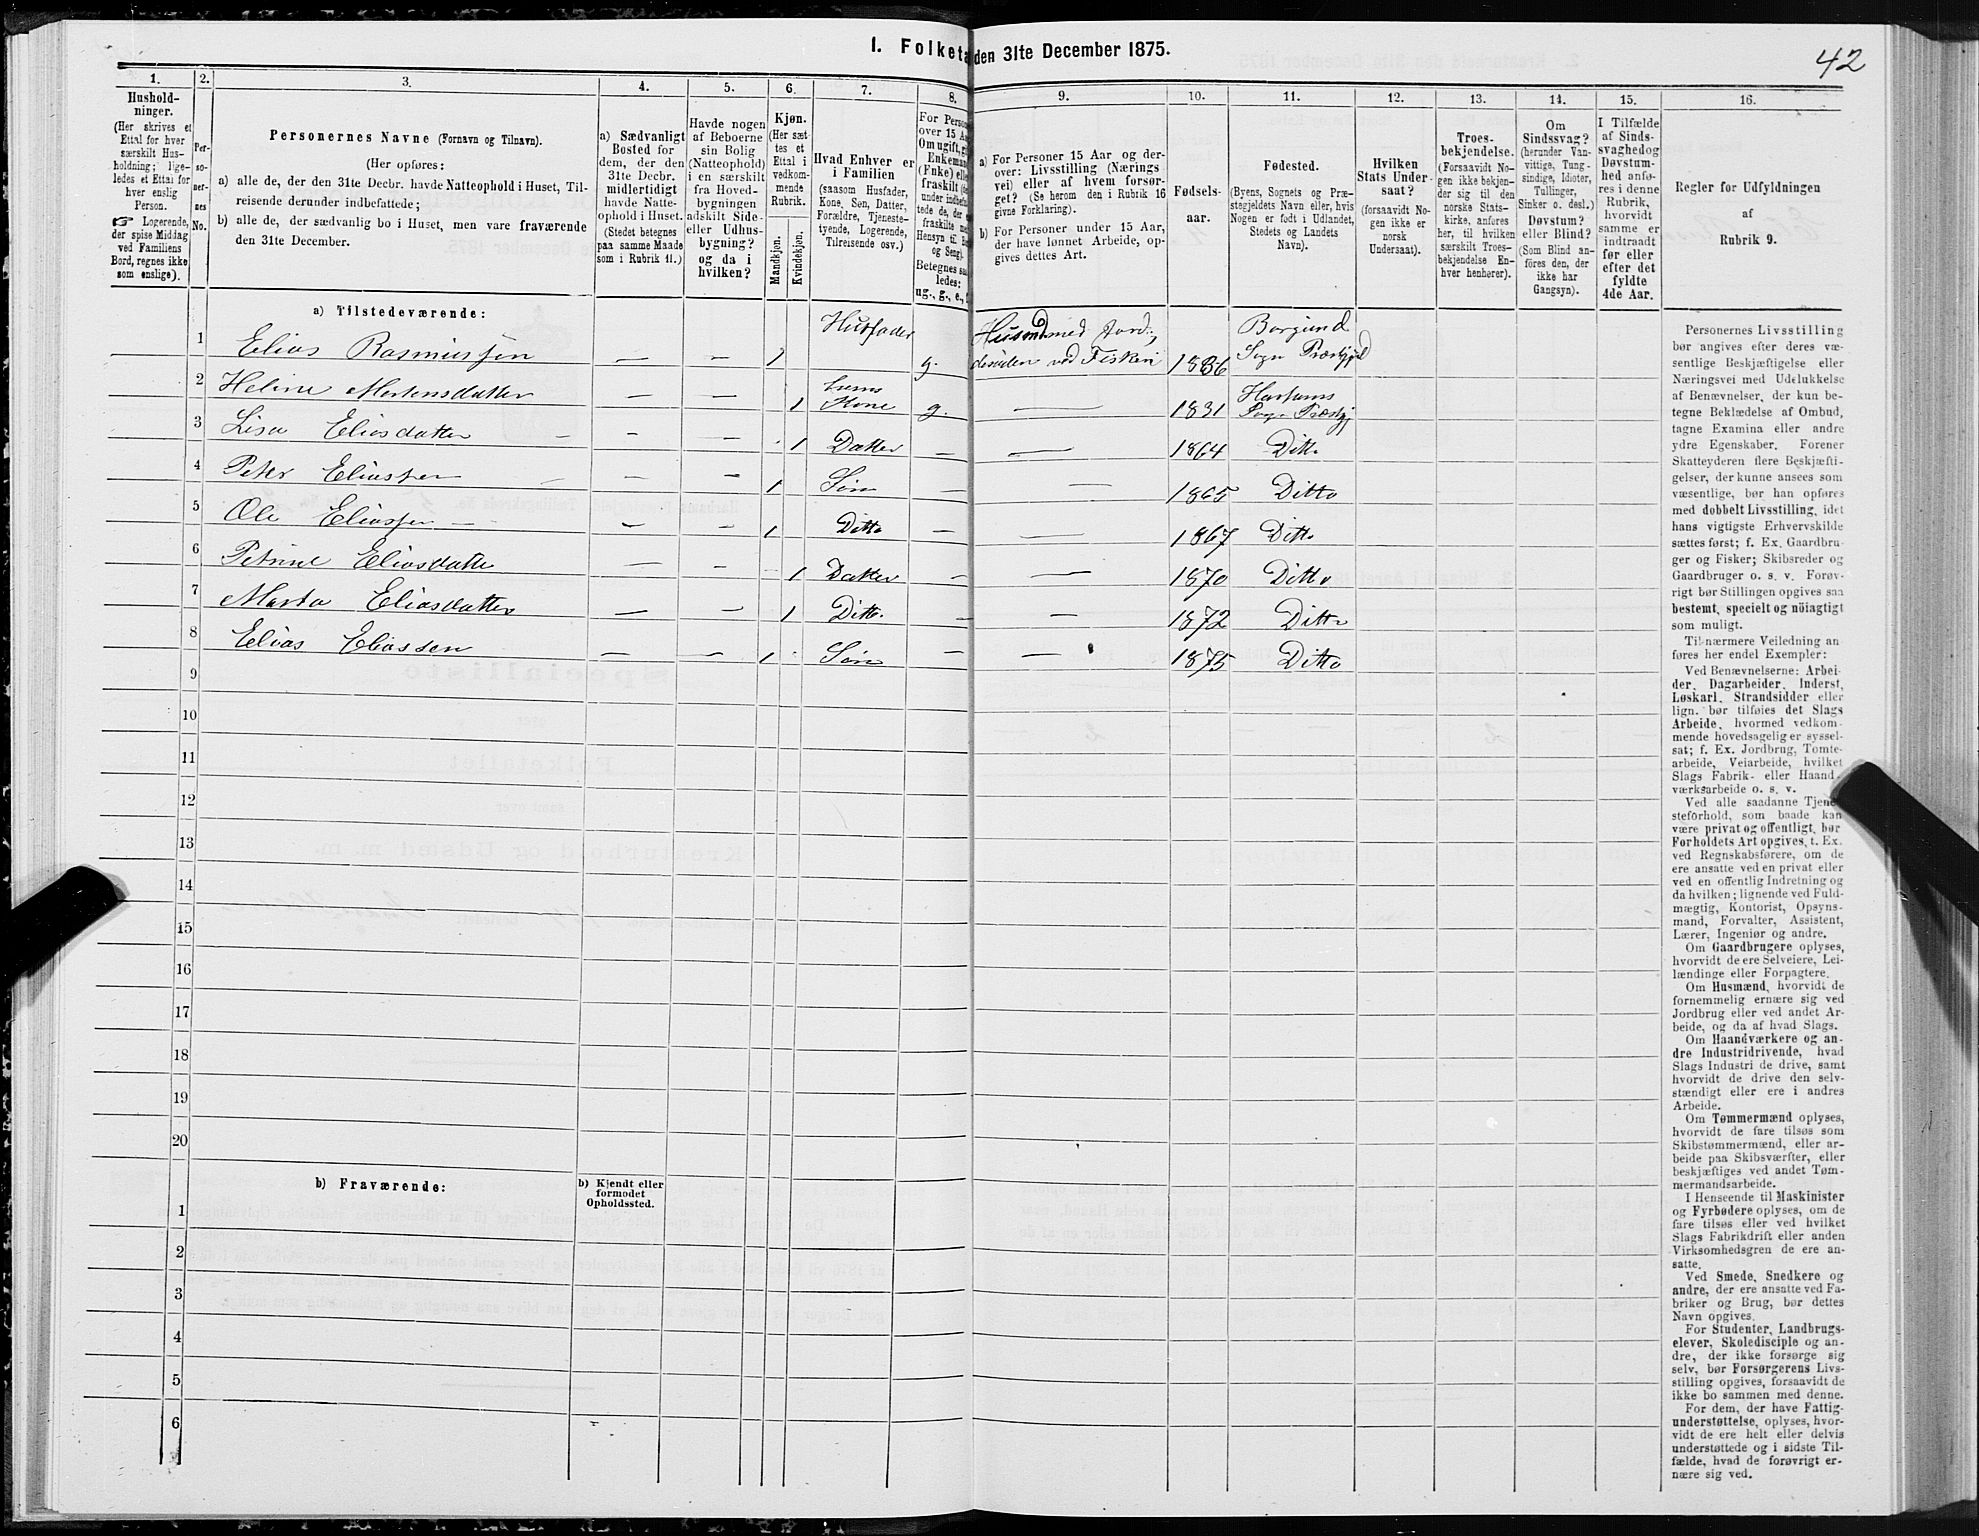 42
I. Folketæ den 31te December 1875.
1. 2. 3. 4. 5. 6. 7. 8. 9. 10. 11. 12. 13. 14. 15. 16.
Hushold-
ninger.
(Her skrives et
Ettal for hver
særskilt Hus-
holdning; lige-
ledes et Ettal for
hver enslig
Person.
☞ Logerende,
der spise Middag
ved Familiens
Bord, regnes ikke
som enslige).
Per-
so-
ner-
nes
No.
Personernes Navne (Fornavn og Tilnavn).
(Her opføres:
a) alle de, der den 31te Decbr. havde Natteophold i Huset, Til-
reisende derunder indbefattede;
b) alle de, der sædvanlig bo i Huset, men vare fraværende
den 31te December.
a) Sædvanligt
Bosted for
dem, der den
31te Decbr.
midlertidigt
havde Natte-
ophold i Huset.
(Stedet betegnes
paa samme Maade
som i Rubrik 11.)
Havde nogen
af Beboerne
sin Bolig
(Natteophold)
i en særskilt
fra Hoved-
bygningen
adskilt Side-
eller Udhus-
bygning?
og da i
hvilken?
Kjøn.
(Her sæt-
tes et
Ettal i
vedkom-
mende
Rubrik.
Mandkjøn.
Kvindekjøn.
Hvad Enhver er
i Familien
(saasom Husfader,
Kone, Søn, Datter,
Forældre, Tjeneste-
tyende, Logerende,
Tilreisende osv.)
For Person
over 15 Aa
Om ugift, gi
Enkeman
(Enke) elle
fraskilt (de
under indbefat
tede de, der
fraskilte me
Hensyn til Bo
og Seng).
Betegnes saa
ledes:
ug., g., e., f
a) For Personer 15 Aar og der-
over: Livsstilling (Nærings-
vei) eller af hvem forsør-
get? (Se herom den i Rubrik 16
givne Forklaring).
b) For Personer under 15 Aar,
der have lønnet Arbeide, op-
gives dettes Art.
Fødsels-
aar.
Fødested.
(Byens, Sognets og Præ-
stegjeldets Navn eller, hvis
Nogen er født i Udlandet,
Stedets og Landets
Navn).
Hvilken
Stats Under-
saat?
(forsaavidt No-
gen ikke er
norsk
Undersaat).
Troes-
bekjendelse.
(Forsaavidt No-
gen ikke bekjen-
der sig til den
norske Stats-
kirke, anføres
her, til hvilken
særskilt Troes-
bekjendelse En-
hver henhører).
Om
Sindssvag?
(herunder Van-
vittige, Tung-
sindige, Idioter,
Tullinger,
Sinker o. desl.)
Døvstum?
eller Blind?
(Som Blind an-
føres den, der
ikke har
Gangsyn).
I Tilfælde
af Sinds-
svaghed og
Døvstum-
hed anfø-
res i denne
Rubrik,
hvorvidt
samme er
indtraadt
før eller
efter det
fyldte
4de Aar.
Regler for Udfyldningen
af
Rubrik 9.
a) Tilstedeværende:
1 Elias Rasmussen — — 1 Husfader g. Husmd med Jord; desuden ved Fiskeri 1836 Borgund Sogn Præstgjæld
2 Heline Mortensdatter — — 1 Kone g. — 1831 Harhams Sogn Præstgj
3 Lisa Eliasdatter — — 1 Datter — — 1864 Ditto
4 Peter Eliassen — — 1 Søn — — 1865 Ditto
5 Ole Eliassen — — 1 Ditto — — 1867 Ditto
6 Petrine Eliasdatte — — 1 Datter — — 1870 Ditto
7 Marta Eliasdatter — — 1 Ditto — — 1872 Ditto
8 Elias Eliassen — — 1 Søn — — 1875 Ditto
9
10
11
12
13
14
15
16
17
18
19
20
b) Fraværende:
b) Kjendt eller
formodet
Opholdssted.
1
2
3
4
5
6
Personernes Livsstilling
bør angives efter deres væ-
sentlige Beskjæftigelse eller
Næringsvei med Udelukkelse
af Benævnelser, der kun be-
tegne Beklædelse af Ombud,
tagne Examina eller andre
ydre Egenskaber. Forener
Skatteyderen flere Beskjæfti-
gelser, der kunne ansees som
væsentlige, bør han opføres
med dobbelt Livsstilling, idet
hans vigtigste Erhvervskilde
sættes først; f. Ex. Gaardbru-
ger og Fisker; Skibsreder og
Gaardbruger o. s. v. Forøv-
rigt bør Stillingen opgives saa
bestemt, specielt og nöiagtigt
som muligt.
Til nærmere Veiledning an
føres her endel Exempler:
Ved Benævnelserne: Arbei-
der, Dagarbeider, Inderst,
Løskarl, Strandsidder eller
lign. bør tilføies det Slags
Arbeide, hvormed vedkom-
mende hovedsagelig er syssel-
sat; f. Ex. Jordbrug, Tomte-
arbeide, Veiarbeide, hvilket
Slags Fabrik- eller Haand-
værksarbeide o. s. v.
Ved alle saadanne Tjene-
steforhold, som baade kan
være privat og offentligt, bør
Forholdets Art opgives, t. Ex.
ved Regnskabsførere, om de
ere ansatte ved en privat eller
ved en offentlig Indretning og
da hvilken; lignende ved Fuld-
mægtig, Kontorist, Opsyns-
mand, Forvalter, Assistent,
Lærer, Ingeniør og andre.
Om Gaardbrugere oplyses,
hvorvidt de ere Selveiere, Lei-
lændinge eller Forpagtere.
Om Husmænd, hvorvidt de
fornemmelig ernære sig ved
Jordbrug eller ved andet Ar-
beide, og da af hvad Slags.
Om Haandværkere og an-
dre Industridrivende, hvad
Slags Industri de drive, samt
hvorvidt de drive den selv-
stændigt eller ere i andres
Arbeide.
Om Tømmermænd oplyses,
hvorvidt de fare tilsøs som
Skibstømmermænd, eller ar-
beide paa Skibsværfter, eller
beskjæftiges ved andet Tøm-
mermandsarbeide.
I Henseende til Maskinister
og Fyrbødere oplyses, om de
fare tilsøs eller ved hvilket
Slags Fabrikdrift eller anden
Virksomhedsgren de ere an-
satte.
Ved Smede, Snedkere og
andre, der ere ansatte ved Fa-
briker og Brug, bør dettes
Navn opgives.
For Studenter, Landbrugs-
elever, Skoledisciple og an-
dre, der ikke forsørge sig
selv, bør Forsørgerens Livs-
stilling opgives, forsaavidt de
ikke bo sammen med denne.
For dem, der have Fattig-
understøttelse, oplyses, hvor-
vidt de ere helt eller delvis
understøttede og i sidste Til-
fælde, hvad de forøvrigt er-
nære sig ved.